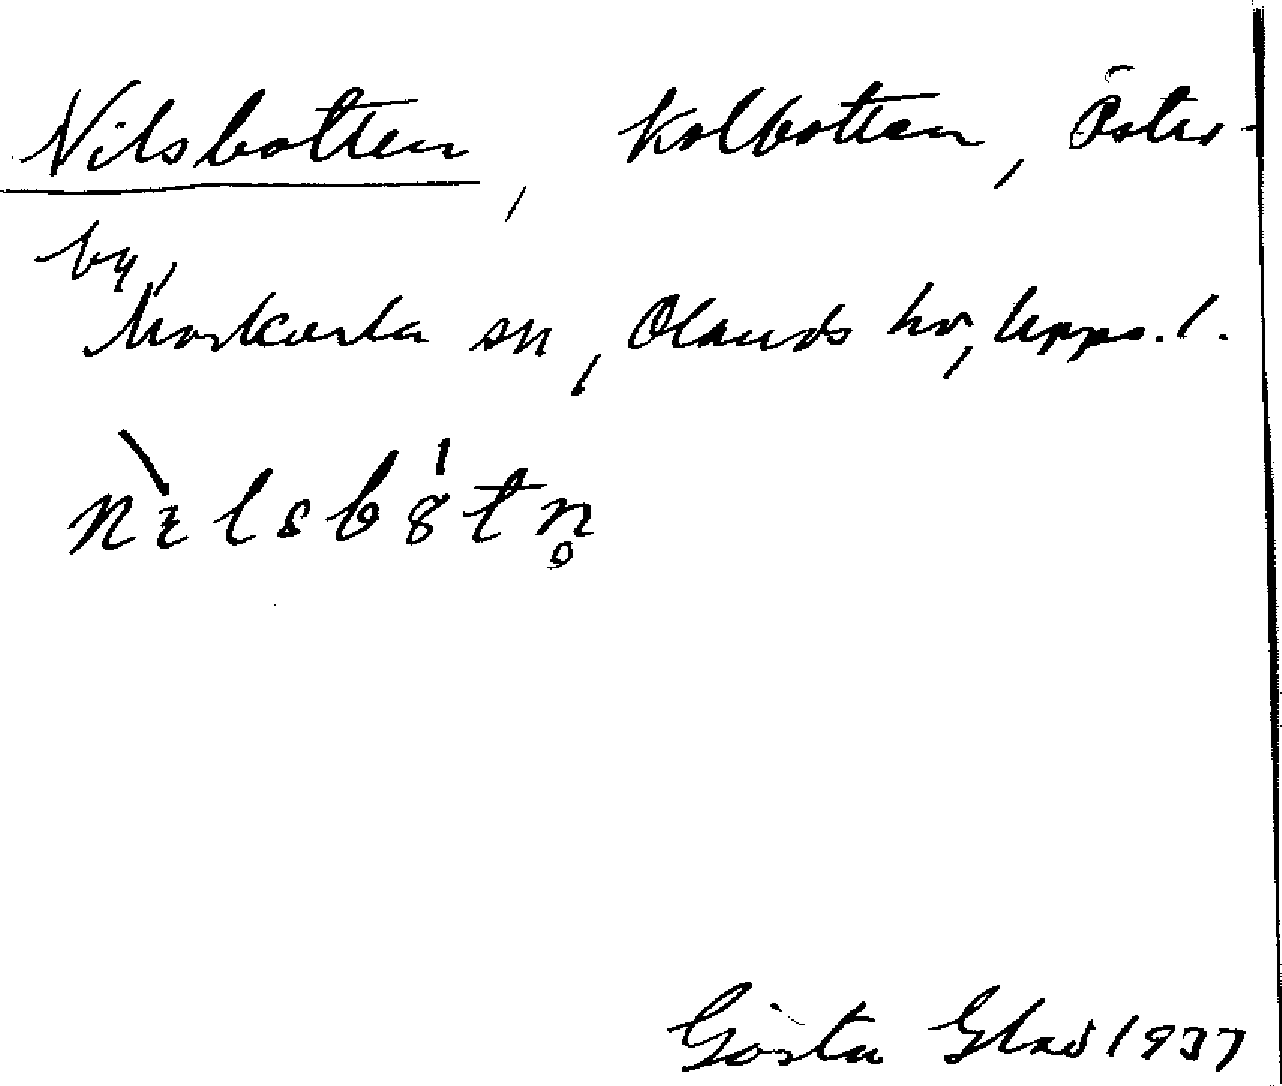 Nilsbotten, kolbotten, Öster-
by,
Morkarla sn, Olands hd, Upps. l.
nìlsbȣ́tn̥
Gösta Glad 1937